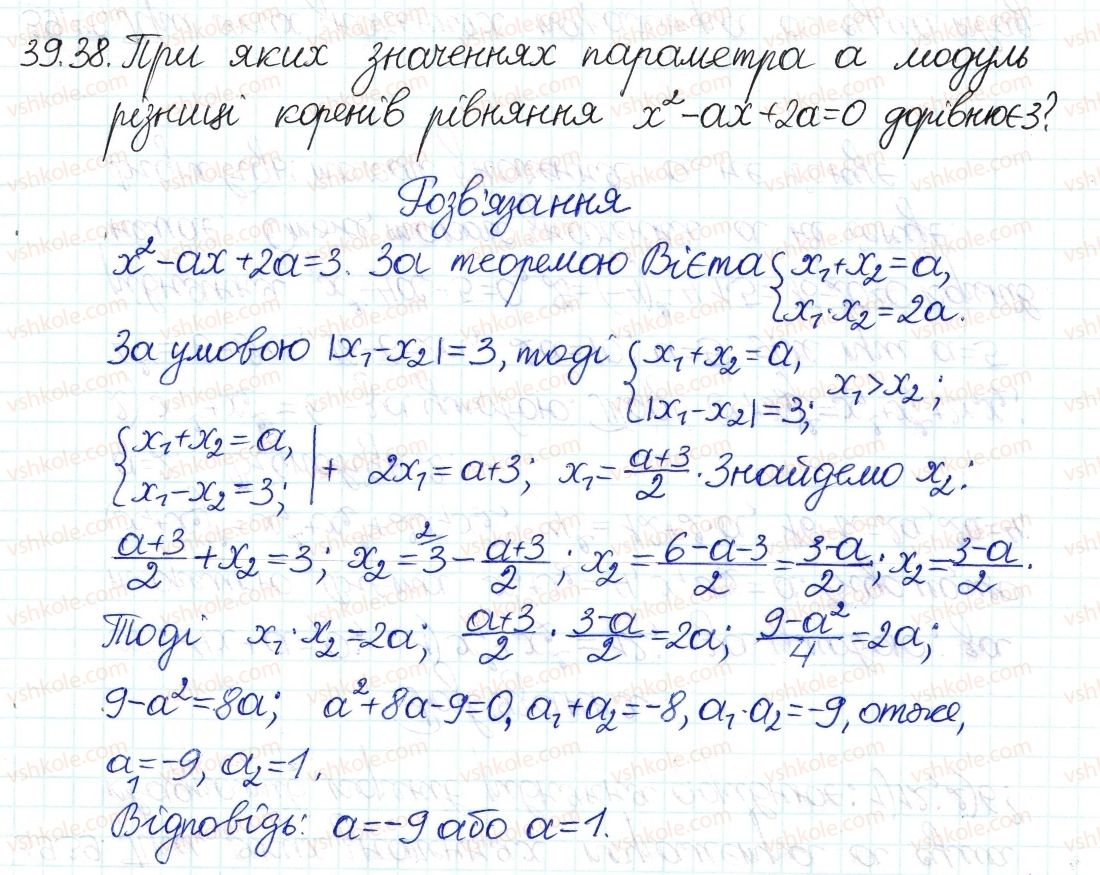 39.38. При яких значеннях параметра а модуль
різниці коренів рівняння x²-ax+2a=0 дорівнює 3?
Розв'язання
x²-ax+2a=3. За теоремою Вієта { x₁+x₂=a,
x₁·x₂=2a.
За умовою |x₁-x₂|=3, тоді { x₁+x₂=a,
|x₁-x₂|=3; x₁>x₂;
{ x₁+x₂=a,
x₁-x₂=3; | + 2x₁=a+3; x₁=(a+3)/2. Знайдемо x₂:
(a+3)/2+x₂=3; x₂=3-(a+3)/2; x₂=(6-a-3)/2=(3-a)/2; x₂=(3-a)/2.
Тоді x₁·x₂=2a; (a+3)/2·(3-a)/2=2a; (9-a²)/4=2a;
9-a²=8a; a²+8a-9=0, a₁+a₂=-8, a₁·a₂=-9, отже,
a₁=-9, a₂=1.
Відповідь: a=-9 або a=1.